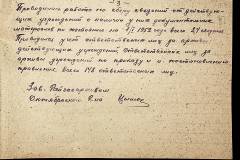 - 3 -
Проведена работа по сбору сведений от действую-
щих учреждений о наличии у них документальных
материалов по состоянию на 1/I 1952 года всего 27 
Проведен учет ответственных лиц за архив
действующих учреждений. Ответственных лиц за
архивы учреждений по приказу и
правлению было 148 ответственных лиц.
Зав. Райгосархивом
Октябрьского р-на